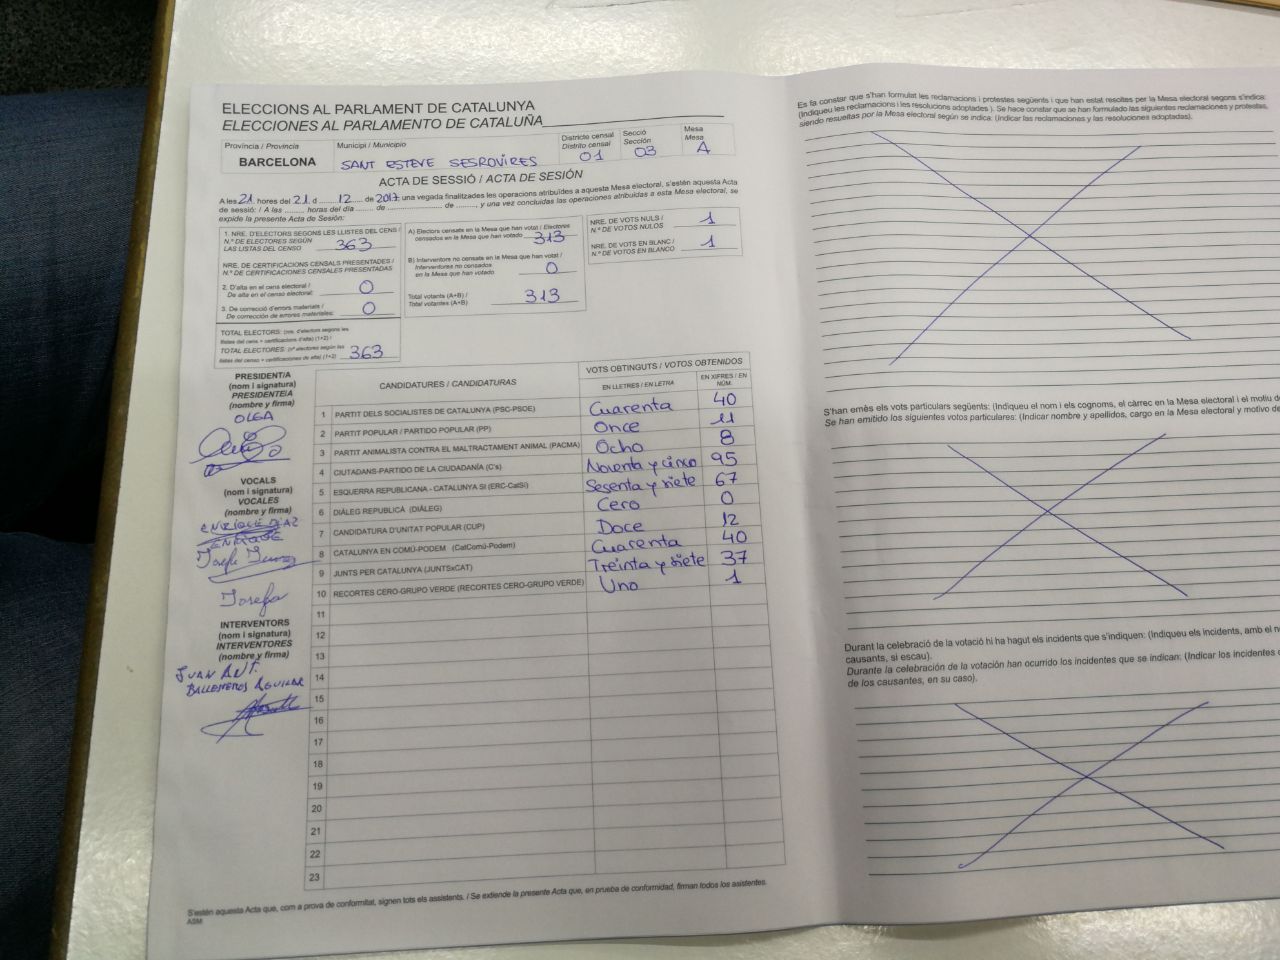 ELECCIONS AL PARLAMENT DE CATALUNYA
ELECCIONES AL PARLAMENTO DE CATALUÑA
Província / Provincia
BARCELONA
Municipi / Municipio
SANT ESTEVE SESROVIRES
Districte censal
Distrito censal
01
Secció
Sección
03
Mesa
Mesa
A
ACTA DE SESSIÓ / ACTA DE SESIÓN
A les 21 hores del 21 d ...... 12 ... de 2017, una vegada finalitzades les operacions atribuïdes a aquesta Mesa electoral, s'estén aquesta Acta
de sessió: / A las ........ horas del día ....... de ........................ de ......., y una vez concluidas las operaciones atribuidas a esta Mesa electoral, se
expide la presente Acta de Sesión:
1. NRE. D'ELECTORS SEGONS LES LLISTES DEL CENS /
N.º DE ELECTORES SEGÚN
LAS LISTAS DEL CENSO 363
NRE. DE CERTIFICACIONS CENSALS PRESENTADES /
N.º DE CERTIFICACIONES CENSALES PRESENTADAS
2. D'alta en el cens electoral /
De alta en el censo electoral: 0
3. De correcció d'errors materials /
De corrección de errores materiales: 0
TOTAL ELECTORS: (nre. d'electors segons les
llistes del cens + certificacions d'alta) (1+2) /
TOTAL ELECTORES: (nº electores según las
listas del censo + certificaciones de alta) (1+2) 363
A) Electors censats en la Mesa que han votat / Electores
censados en la Mesa que han votado 313
B) Interventors no censats en la Mesa que han votat /
Interventores no censados
en la Mesa que han votado 0
Total votants (A+B) /
Total votantes (A+B) 313
NRE. DE VOTS NULS /
N.º DE VOTOS NULOS 1
NRE. DE VOTS EN BLANC /
N.º DE VOTOS EN BLANCO 1
PRESIDENT/A
(nom i signatura)
PRESIDENTE/A
(nombre y firma)
OLGA
VOCALS
(nom i signatura)
VOCALES
(nombre y firma)
ENRIQUE DIAZ
ENRIQUE
Josefa
Josefa
INTERVENTORS
(nom i signatura)
INTERVENTORES
(nombre y firma)
JUAN ANT.
BALLESTEROS AGUILAR
CANDIDATURES / CANDIDATURAS
VOTS OBTINGUTS / VOTOS OBTENIDOS
EN LLETRES / EN LETRA
EN XIFRES / EN NÚM.
1 PARTIT DELS SOCIALISTES DE CATALUNYA (PSC-PSOE) Cuarenta 40
2 PARTIT POPULAR / PARTIDO POPULAR (PP) Once 11
3 PARTIT ANIMALISTA CONTRA EL MALTRACTAMENT ANIMAL (PACMA) Ocho 8
4 CIUTADANS-PARTIDO DE LA CIUDADANÍA (C's) Noventa y cinco 95
5 ESQUERRA REPUBLICANA - CATALUNYA SI (ERC-CatSí) Sesenta y siete 67
6 DIÀLEG REPUBLICÀ (DIÀLEG) Cero 0
7 CANDIDATURA D'UNITAT POPULAR (CUP) Doce 12
8 CATALUNYA EN COMÚ-PODEM (CatComú-Podem) Cuarenta 40
9 JUNTS PER CATALUNYA (JUNTSxCAT) Treinta y siete 37
10 RECORTES CERO-GRUPO VERDE (RECORTES CERO-GRUPO VERDE) Uno 1
11
12
13
14
15
16
17
18
19
20
21
22
23
S'estén aquesta Acta que, com a prova de conformitat, signen tots els assistents. / Se extiende la presente Acta que, en prueba de conformidad, firman todos los asistentes.
ASM
Es fa constar que s'han formulat les reclamacions i protestes següents i que han estat resoltes per la Mesa electoral segons s'indica:
(Indiqueu les reclamacions i les resolucions adoptades ). Se hace constar que se han formulado las siguientes reclamaciones y protestas,
siendo resueltas por la Mesa electoral según se indica: (Indicar las reclamaciones y las resoluciones adoptadas).
S'han emès els vots particulars següents: (Indiqueu el nom i els cognoms, el càrrec en la Mesa electoral i el motiu
Se han emitido los siguientes votos particulares: (Indicar nombre y apellidos, cargo en la Mesa electoral y motivo
Durant la celebració de la votació hi ha hagut els incidents que s'indiquen: (Indiqueu els incidents, amb el
causants, si escau).
Durante la celebración de la votación han ocurrido los incidentes que se indican: (Indicar los incidentes
de los causantes, en su caso).